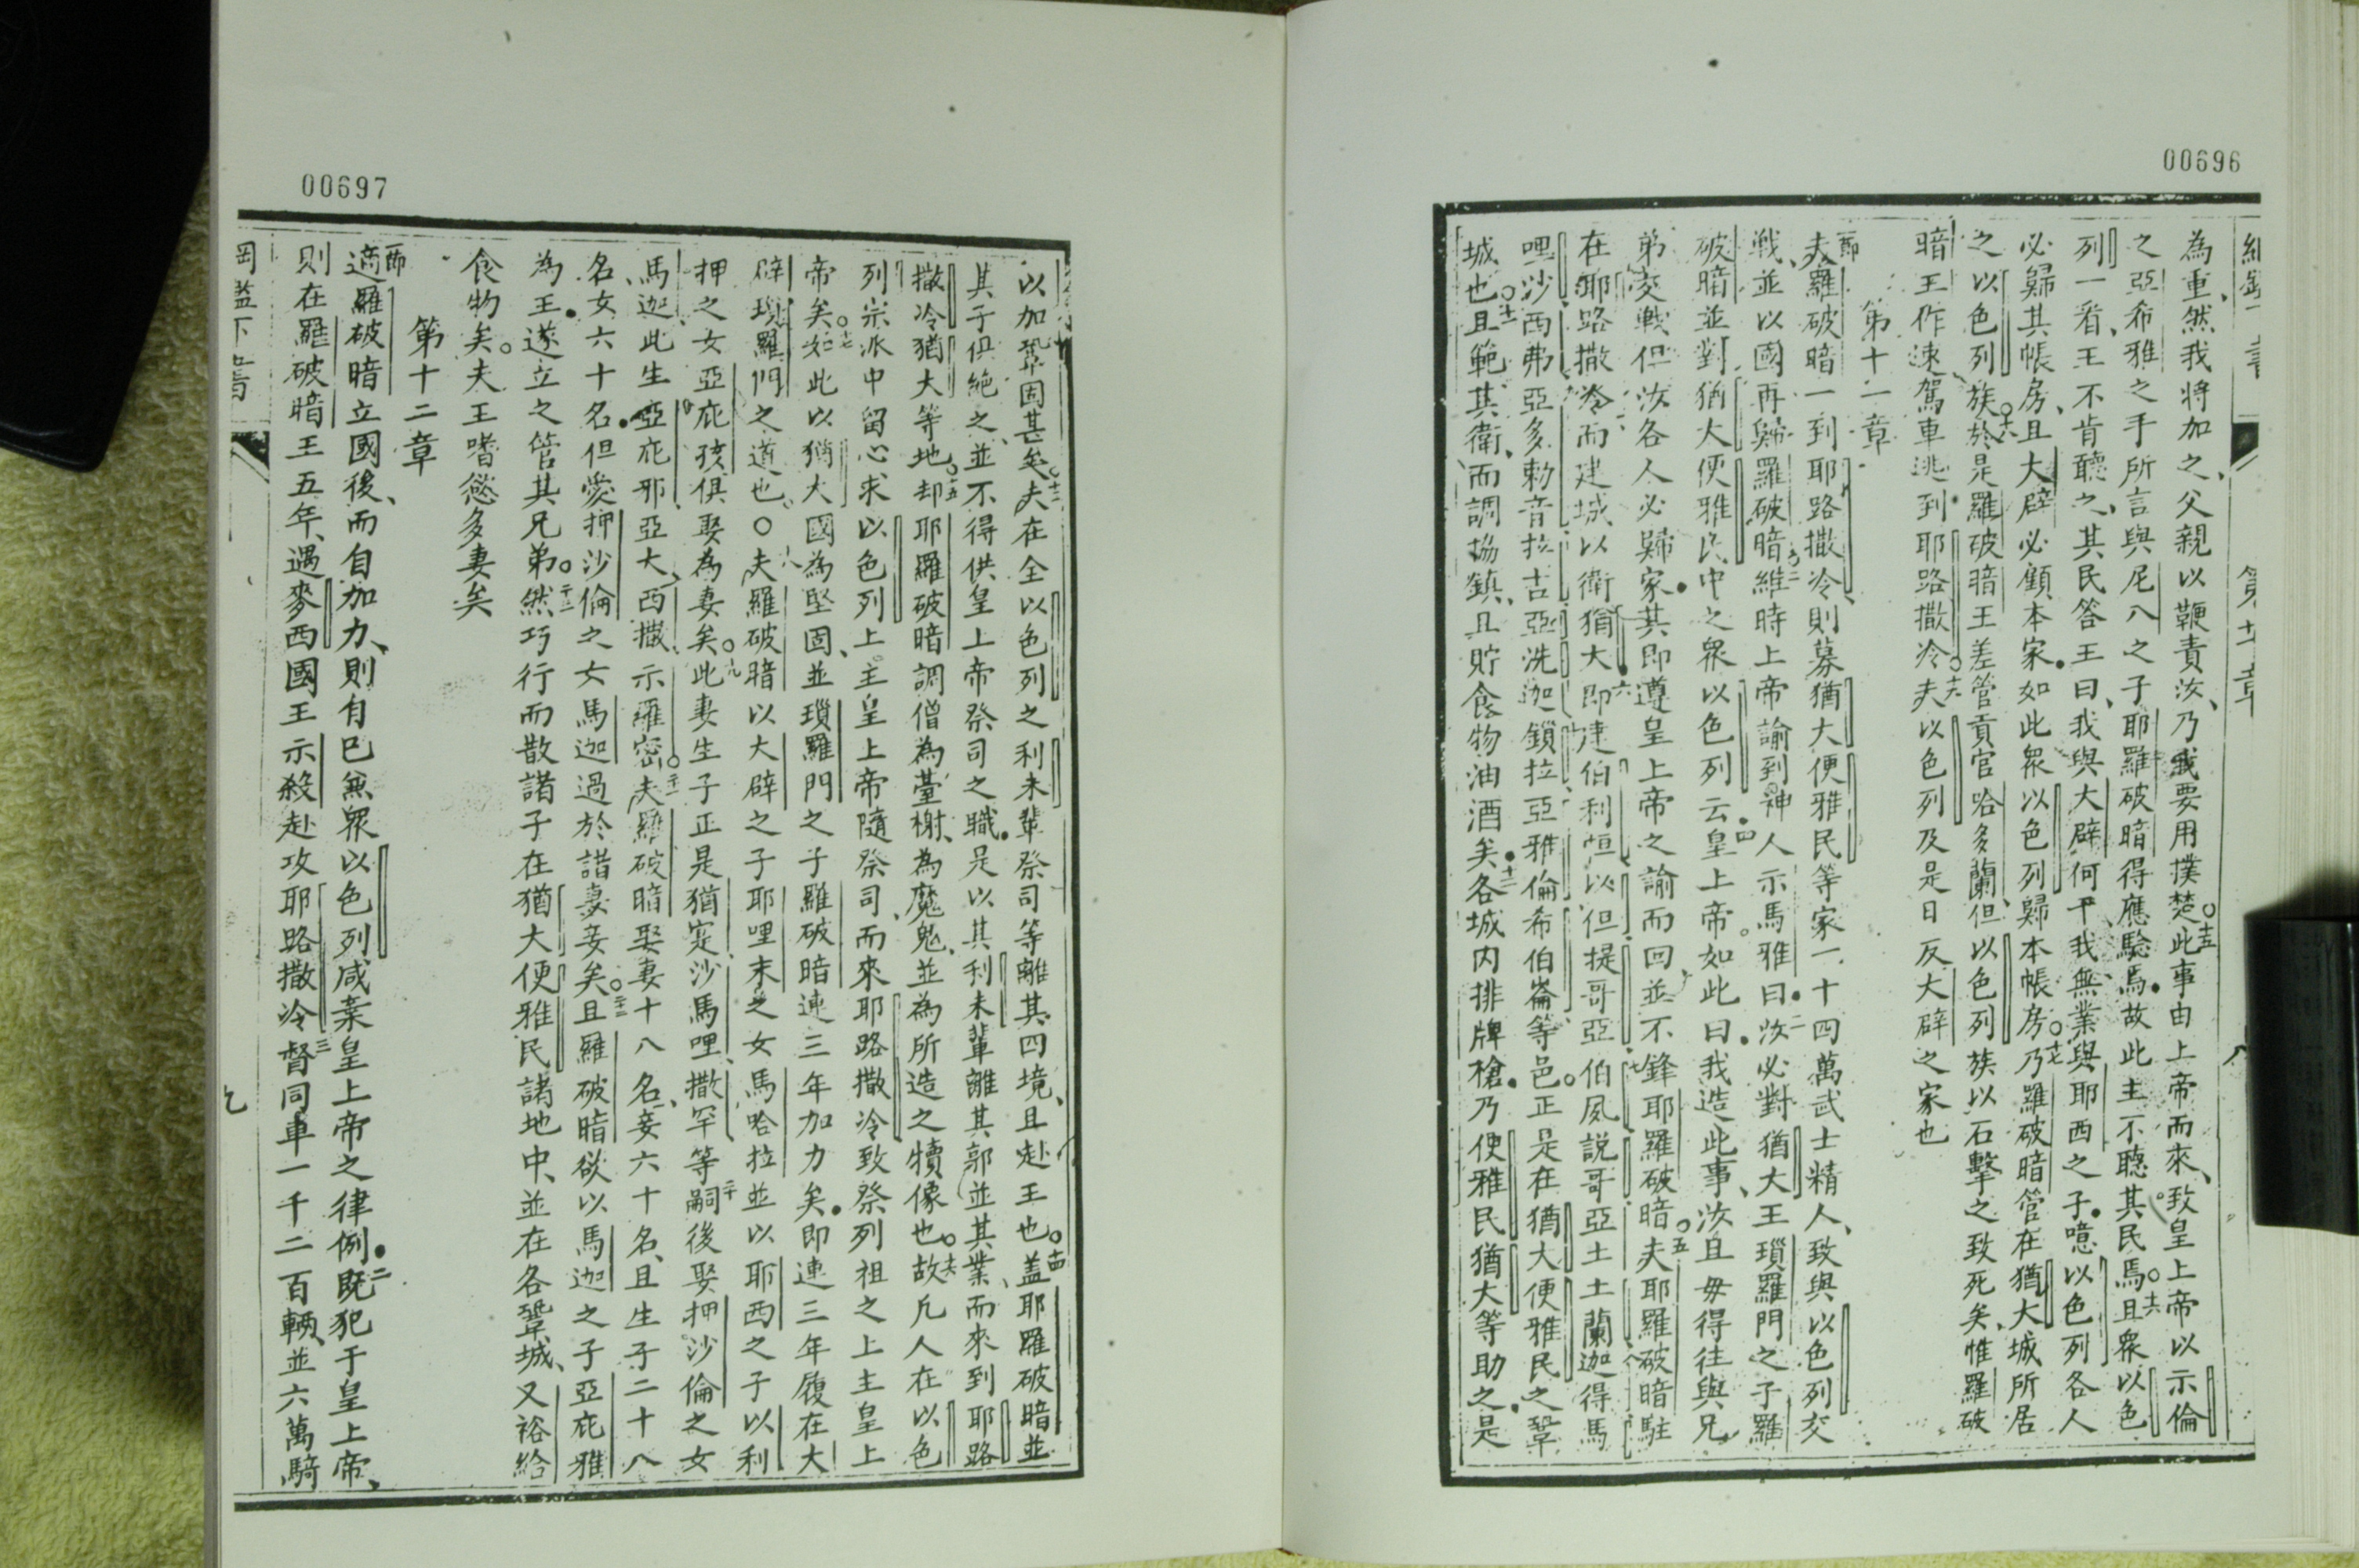 00696
為重、然我將加之、父親以鞭責汝、乃我要用撲楚○十五此事由上帝而來、致皇上帝以示倫
之亞希雅之手所言與尼八之子耶羅破暗得應騐焉●故此主不聽其民焉○十六且衆以色
列一看、王不肯聽之、其民答王曰、我與大辟何干、我無業與耶西之子●噫以色列各人
必歸其帳房、且大辟必顧本家●如此衆以色列歸本帳房○十七乃羅破暗管在猶大城所居
之以色列族○十八於是羅破暗王差管貢官哈多蘭、但以色列族以石擊之致死矣、惟羅破
暗王作速駕車逃到耶路撒冷○十九夫以色列及是日反大辟之家也
第十一章
一節夫羅破暗一到耶路撒冷、則募猶大便雅民等家一十四萬武士精人、致與以色列交
戰、並以國再歸羅破暗○二維時上帝諭到神人示馬雅曰●三汝必對猶大王瑣羅門之子羅
破暗並對猶大便雅民中之衆以色列云●四皇上帝如此曰●我造此事、汝且毋得往與兄
弟交戰但汝各人必歸家●其即遵皇上帝之諭而回並不鋒耶羅破暗○五夫耶羅破暗駐
在耶路撒冷而建城以衛猶大●六即建伯利恒以但提哥亞七伯夙説哥亞土土蘭八迦得馬
哩沙西弗九亞多勒音拉古亞洗迦十鎖拉亞雅倫希伯崙等邑○正是在猶大便雅民之鞏
城也○十一且範其衛、而調揚鎮、且貯食物油酒矣●十二各城内排牌槍●乃便雅民猶大等助之●是
00697
以加鞏固甚矣○十三夫在全以色列之利未輩祭司等離其四境、且赴王也○十四盖耶羅破暗並
其子俱絶之、並不得供皇上帝祭司之職●是以其利未輩離其郭並其業、而來到耶路
撒冷猶大等地○十五却耶羅破暗調僧為臺榭、為魔鬼、並為所造之犢像也○十六故凢人在以色
列宗派中留心求以色列上主皇上帝隨祭司、而來耶路撒冷致祭列祖之上主皇上
帝矣○十七如此以猶大國為堅固、並瑣羅門之子羅破暗連三年加力矣●即連三年履在大
辟瑣羅門之道也○十八夫羅破暗以大辟之子耶哩末之女馬哈拉並以耶西之子以利
押之女亞庇孩俱娶為妻矣○十九此妻生子正是猶寔沙馬哩、撒罕等嗣二十後娶押沙倫之女
馬迦、此生亞庇邪亞大、西撒示羅密○二十一夫羅破暗娶妻十八名、妾六十名、且生子二十八
名女六十名●但愛押沙倫之女馬迦過於諸妻妾矣○二十二且羅破暗欲以馬迦之子亞庇雅
為王●遂立之管其兄弟○二十三然巧行而散諸子在猶大便雅民諸地中、並在各鞏城、又裕給
食物矣○夫王嗜慾多妻矣
第十二章
一節適羅破暗立國後、而自加力、則自已無衆以色列咸棄皇上帝之律例●二既犯于皇上帝、
則在羅破暗王五年、遇麥西國王示殺赴攻耶路撒冷三督同車一千二百輛、並六萬騎